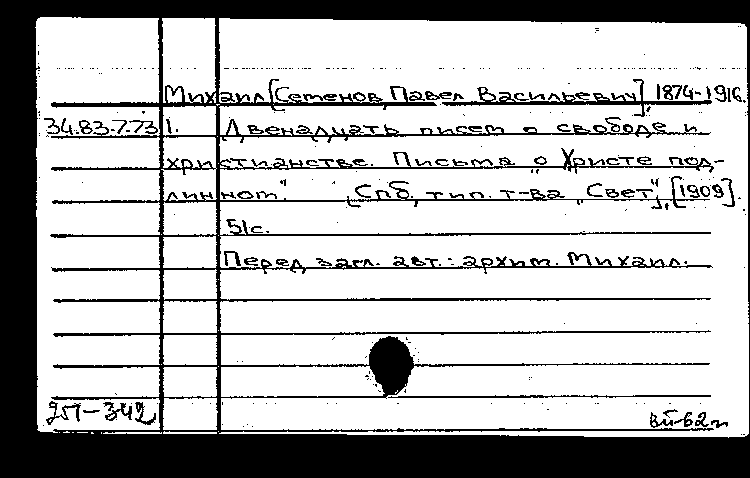 Михаил [Семенов, Павел Васильевич], 1874-1916.
34.83.7.73 1. Двенадцать писем о свободе и
христианстве. Письма „о Христе под-
линном“. [Спб, тип. т-ва „Свет“], [1909].
51с.
Перед загл. авт.: архим. Михаил.